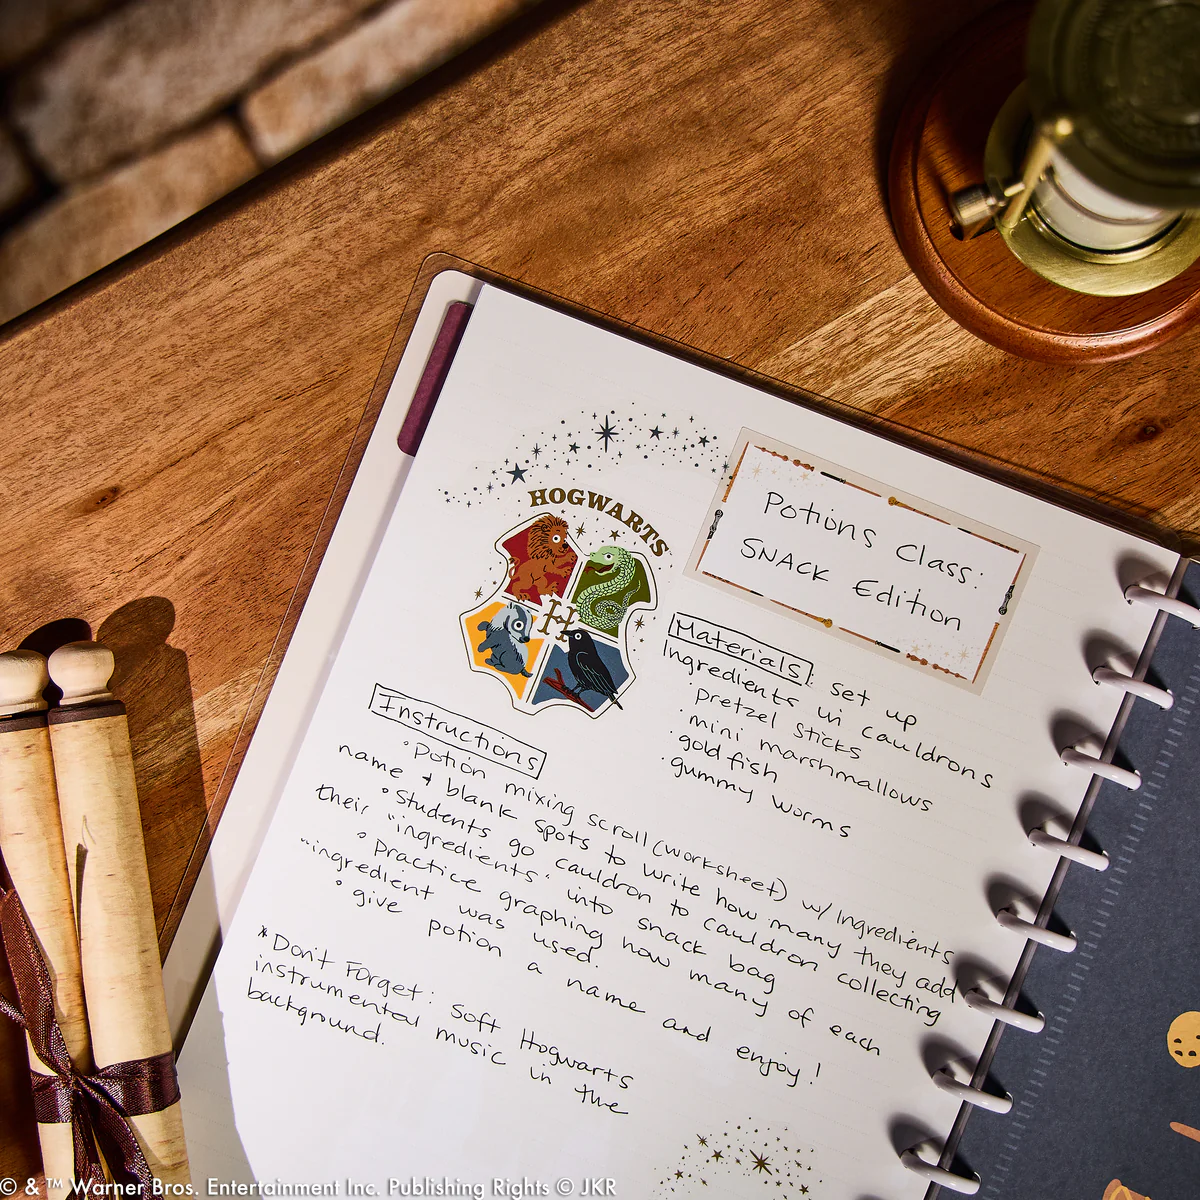 HOGWARTS
H
Potions Class:
SNACK Edition
Materials: set up
Ingredients in cauldrons
·pretzel sticks
·mini marshmallows
·goldfish
·gummy worms
Instructions
°Potion mixing scroll (worksheet) w/ Ingredients
name & blank spots to write how many they add
°Students go cauldron to cauldron collecting
their "ingredients" into snack bag
° Practice graphing how many of each
"ingredient was used.
° give potion a name and enjoy!
*Don't Forget: soft Hogwarts
instrumental music in the
background.
© & ™ Warner Bros. Entertainment Inc. Publishing Rights © JKR